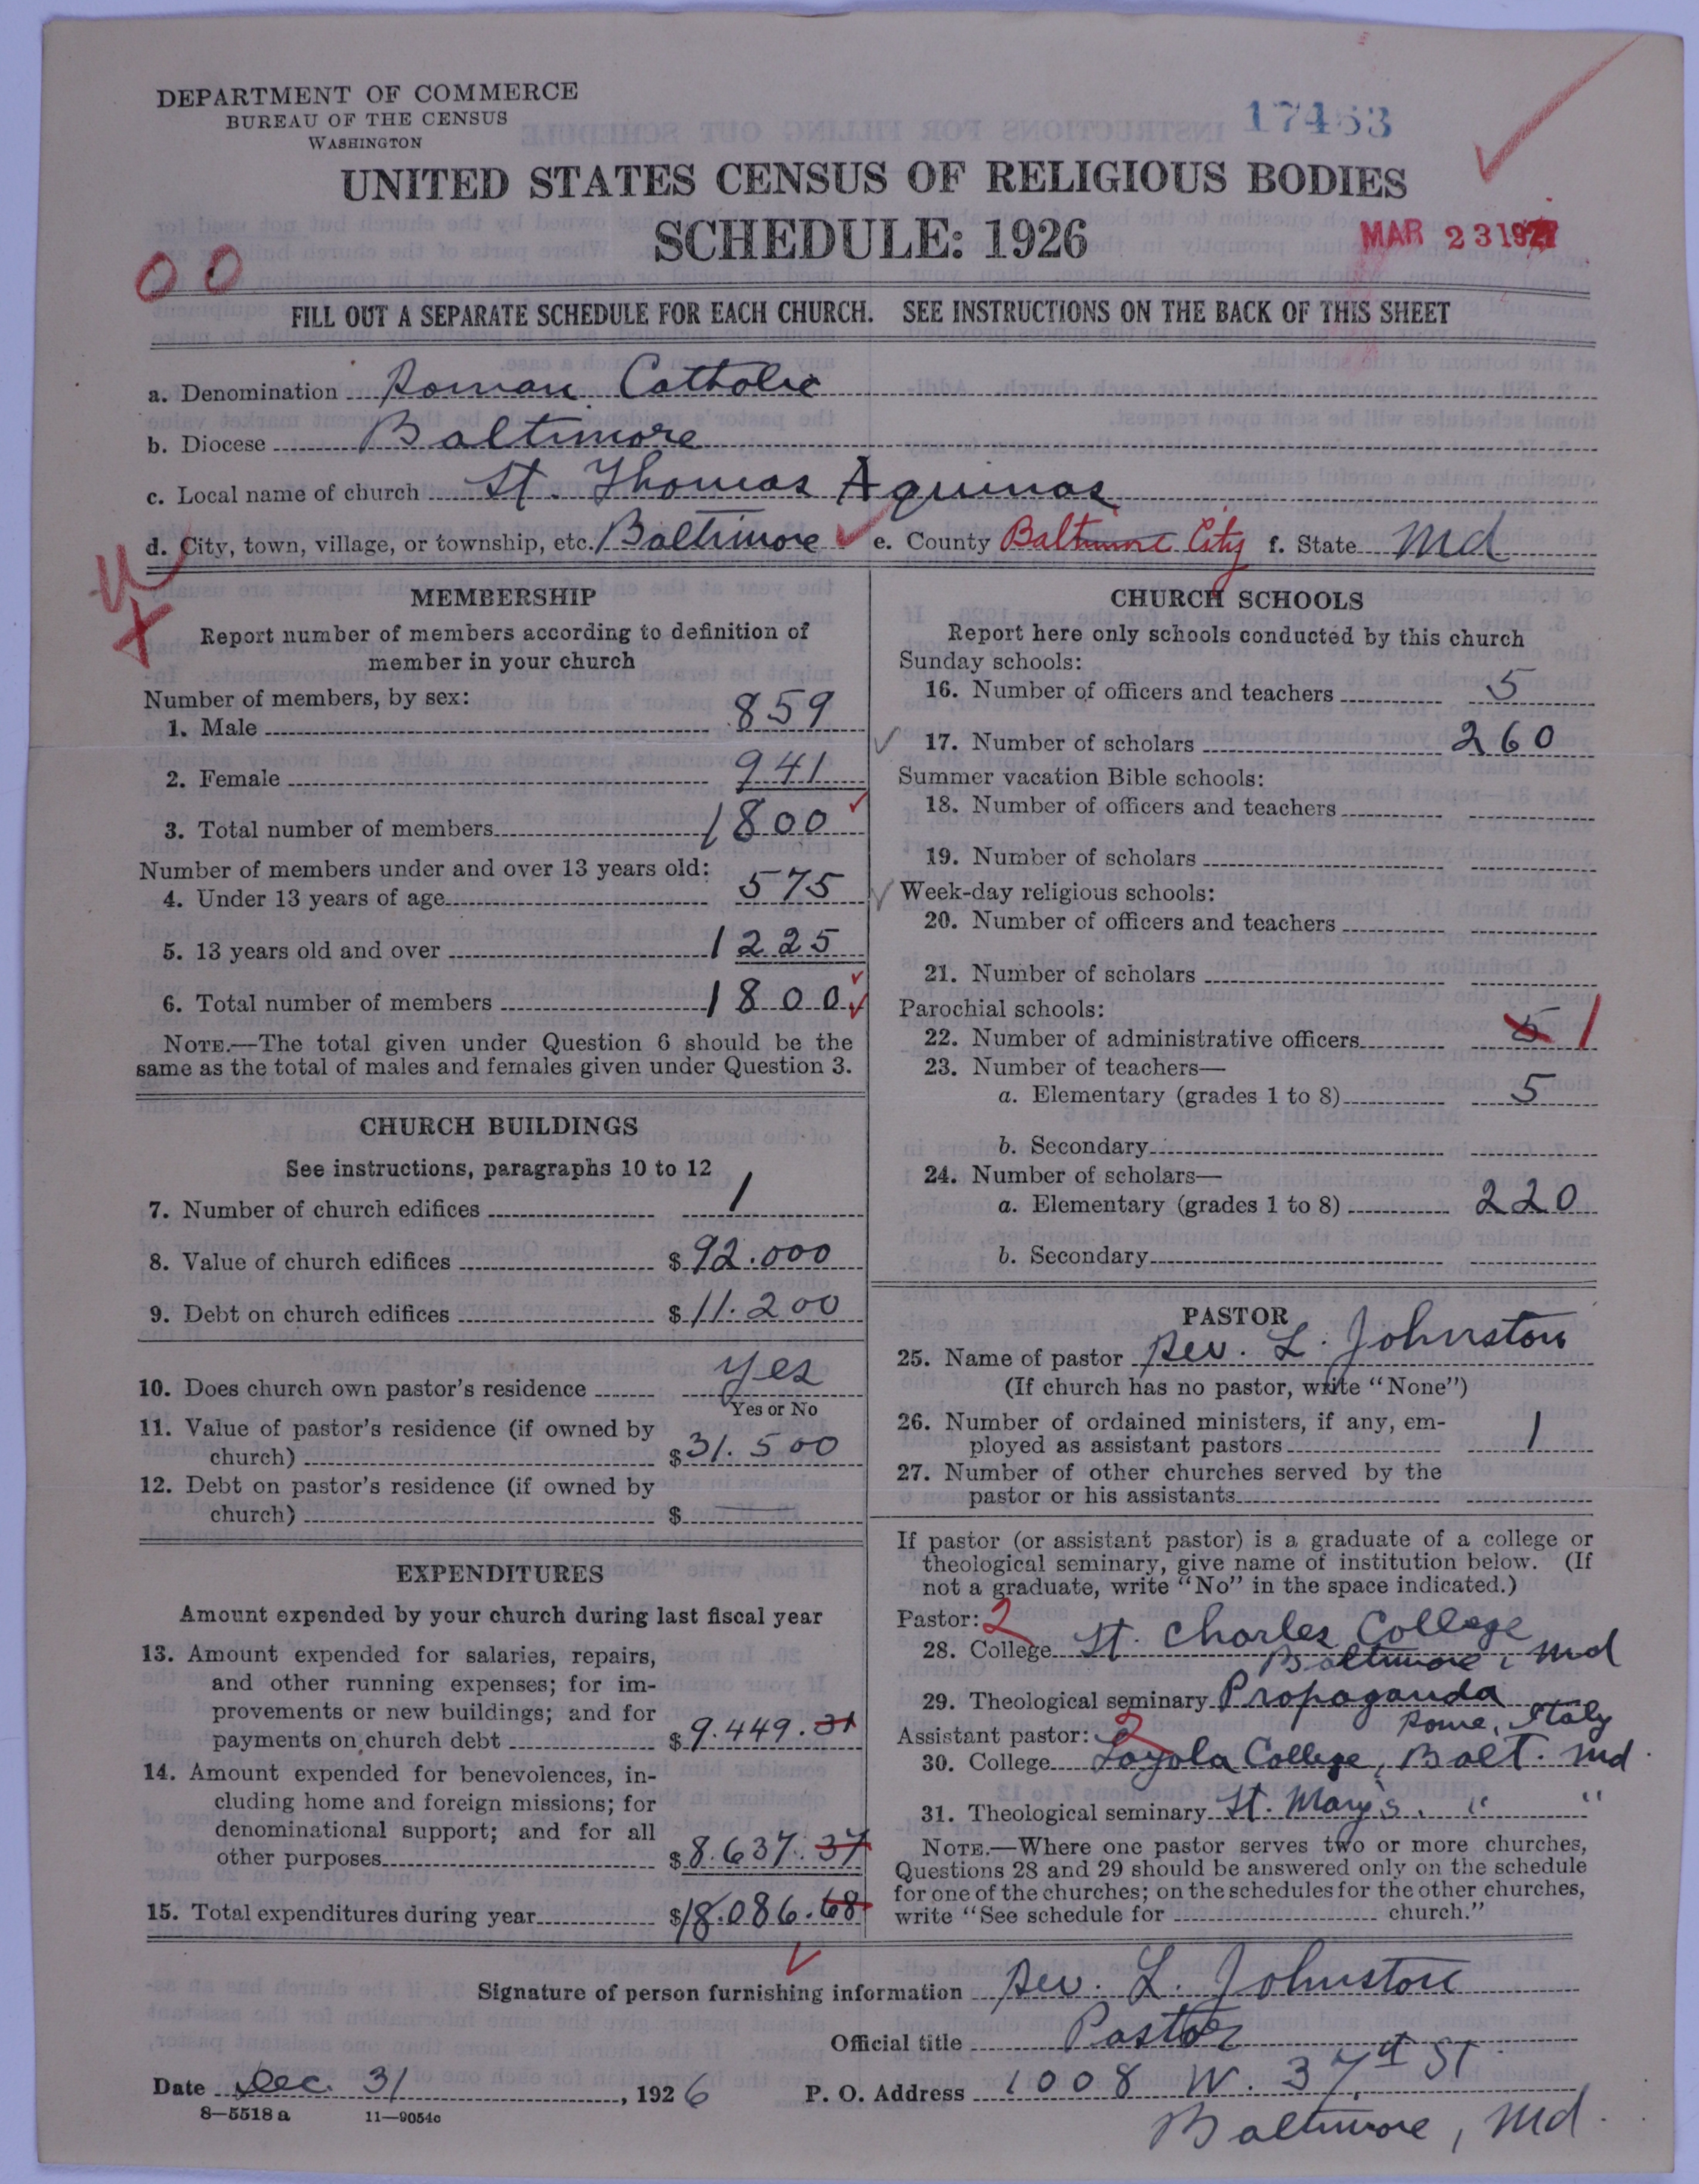 DEPARTMENT OF COMMERCE
BUREAU OF THE CENSUS
WASHINGTON
17463
UNITED STATES CENSUS OF RELIGIOUS BODIES
SCHEDULE: 1926
MAR 23 1927
00
FILL OUT A SEPARATE SCHEDULE FOR EACH CHURCH. SEE INSTRUCTIONS ON THE BACK OF THIS SHEET
a. Denomination Roman Catholic
b. Diocese Baltimore
c. Local name of church St. Thomas Aquinas
d. City, town, village, or township, etc. Baltimore e. County Baltimore City f. State Md
MEMBERSHIP
Report number of members according to definition of
member in your church
Number of members, by sex:
1. Male 859
2. Female 941
3. Total number of members 1800
Number of members under and over 13 years old:
4. Under 13 years of age 575
5. 13 years old and over 1225
6. Total number of members 1800
NOTE.—The total given under Question 6 should be the
same as the total of males and females given under Question 3.
CHURCH BUILDINGS
See instructions, paragraphs 10 to 12
7. Number of church edifices 1
8. Value of church edifices $92.000
9. Debt on church edifices $11.200
10. Does church own pastor's residence yes
Yes or No
11. Value of pastor's residence (if owned by
church) $31.500
12. Debt on pastor's residence (if owned by
church) $ —
EXPENDITURES
Amount expended by your church during last fiscal year
13. Amount expended for salaries, repairs,
and other running expenses; for im-
provements or new buildings; and for
payments on church debt $9.449.31
14. Amount expended for benevolences, in-
cluding home and foreign missions; for
denominational support; and for all
other purposes $8.637.37
15. Total expenditures during year $18.086.68
CHURCH SCHOOLS
Report here only schools conducted by this church
Sunday schools:
16. Number of officers and teachers 5
17. Number of scholars 260
Summer vacation Bible schools:
18. Number of officers and teachers
19. Number of scholars
Week-day religious schools:
20. Number of officers and teachers
21. Number of scholars
Parochial schools:
22. Number of administrative officers 5 1
23. Number of teachers—
a. Elementary (grades 1 to 8) 5
b. Secondary
24. Number of scholars—
a. Elementary (grades 1 to 8) 220
b. Secondary
PASTOR
25. Name of pastor Rev. L. Johnston
(If church has no pastor, write "None")
26. Number of ordained ministers, if any, em-
ployed as assistant pastors 1
27. Number of other churches served by the
pastor or his assistants
If pastor (or assistant pastor) is a graduate of a college or
theological seminary, give name of institution below. (If
not a graduate, write "No" in the space indicated.)
Pastor: 2
28. College St. Charles College
Baltimore, Md
29. Theological seminary Propaganda
Rome, Italy
Assistant pastor: 2
30. College Loyola College, Balt. Md.
31. Theological seminary St. Mary's. " "
NOTE.—Where one pastor serves two or more churches,
Questions 28 and 29 should be answered only on the schedule
for one of the churches; on the schedules for the other churches,
write "See schedule for church."
Signature of person furnishing information Rev. L. Johnston
Official title Pastor
Date Dec. 31, 1926 P. O. Address 1008 W. 37th St.
8—5518 a 11—9054c
Baltimore, Md.